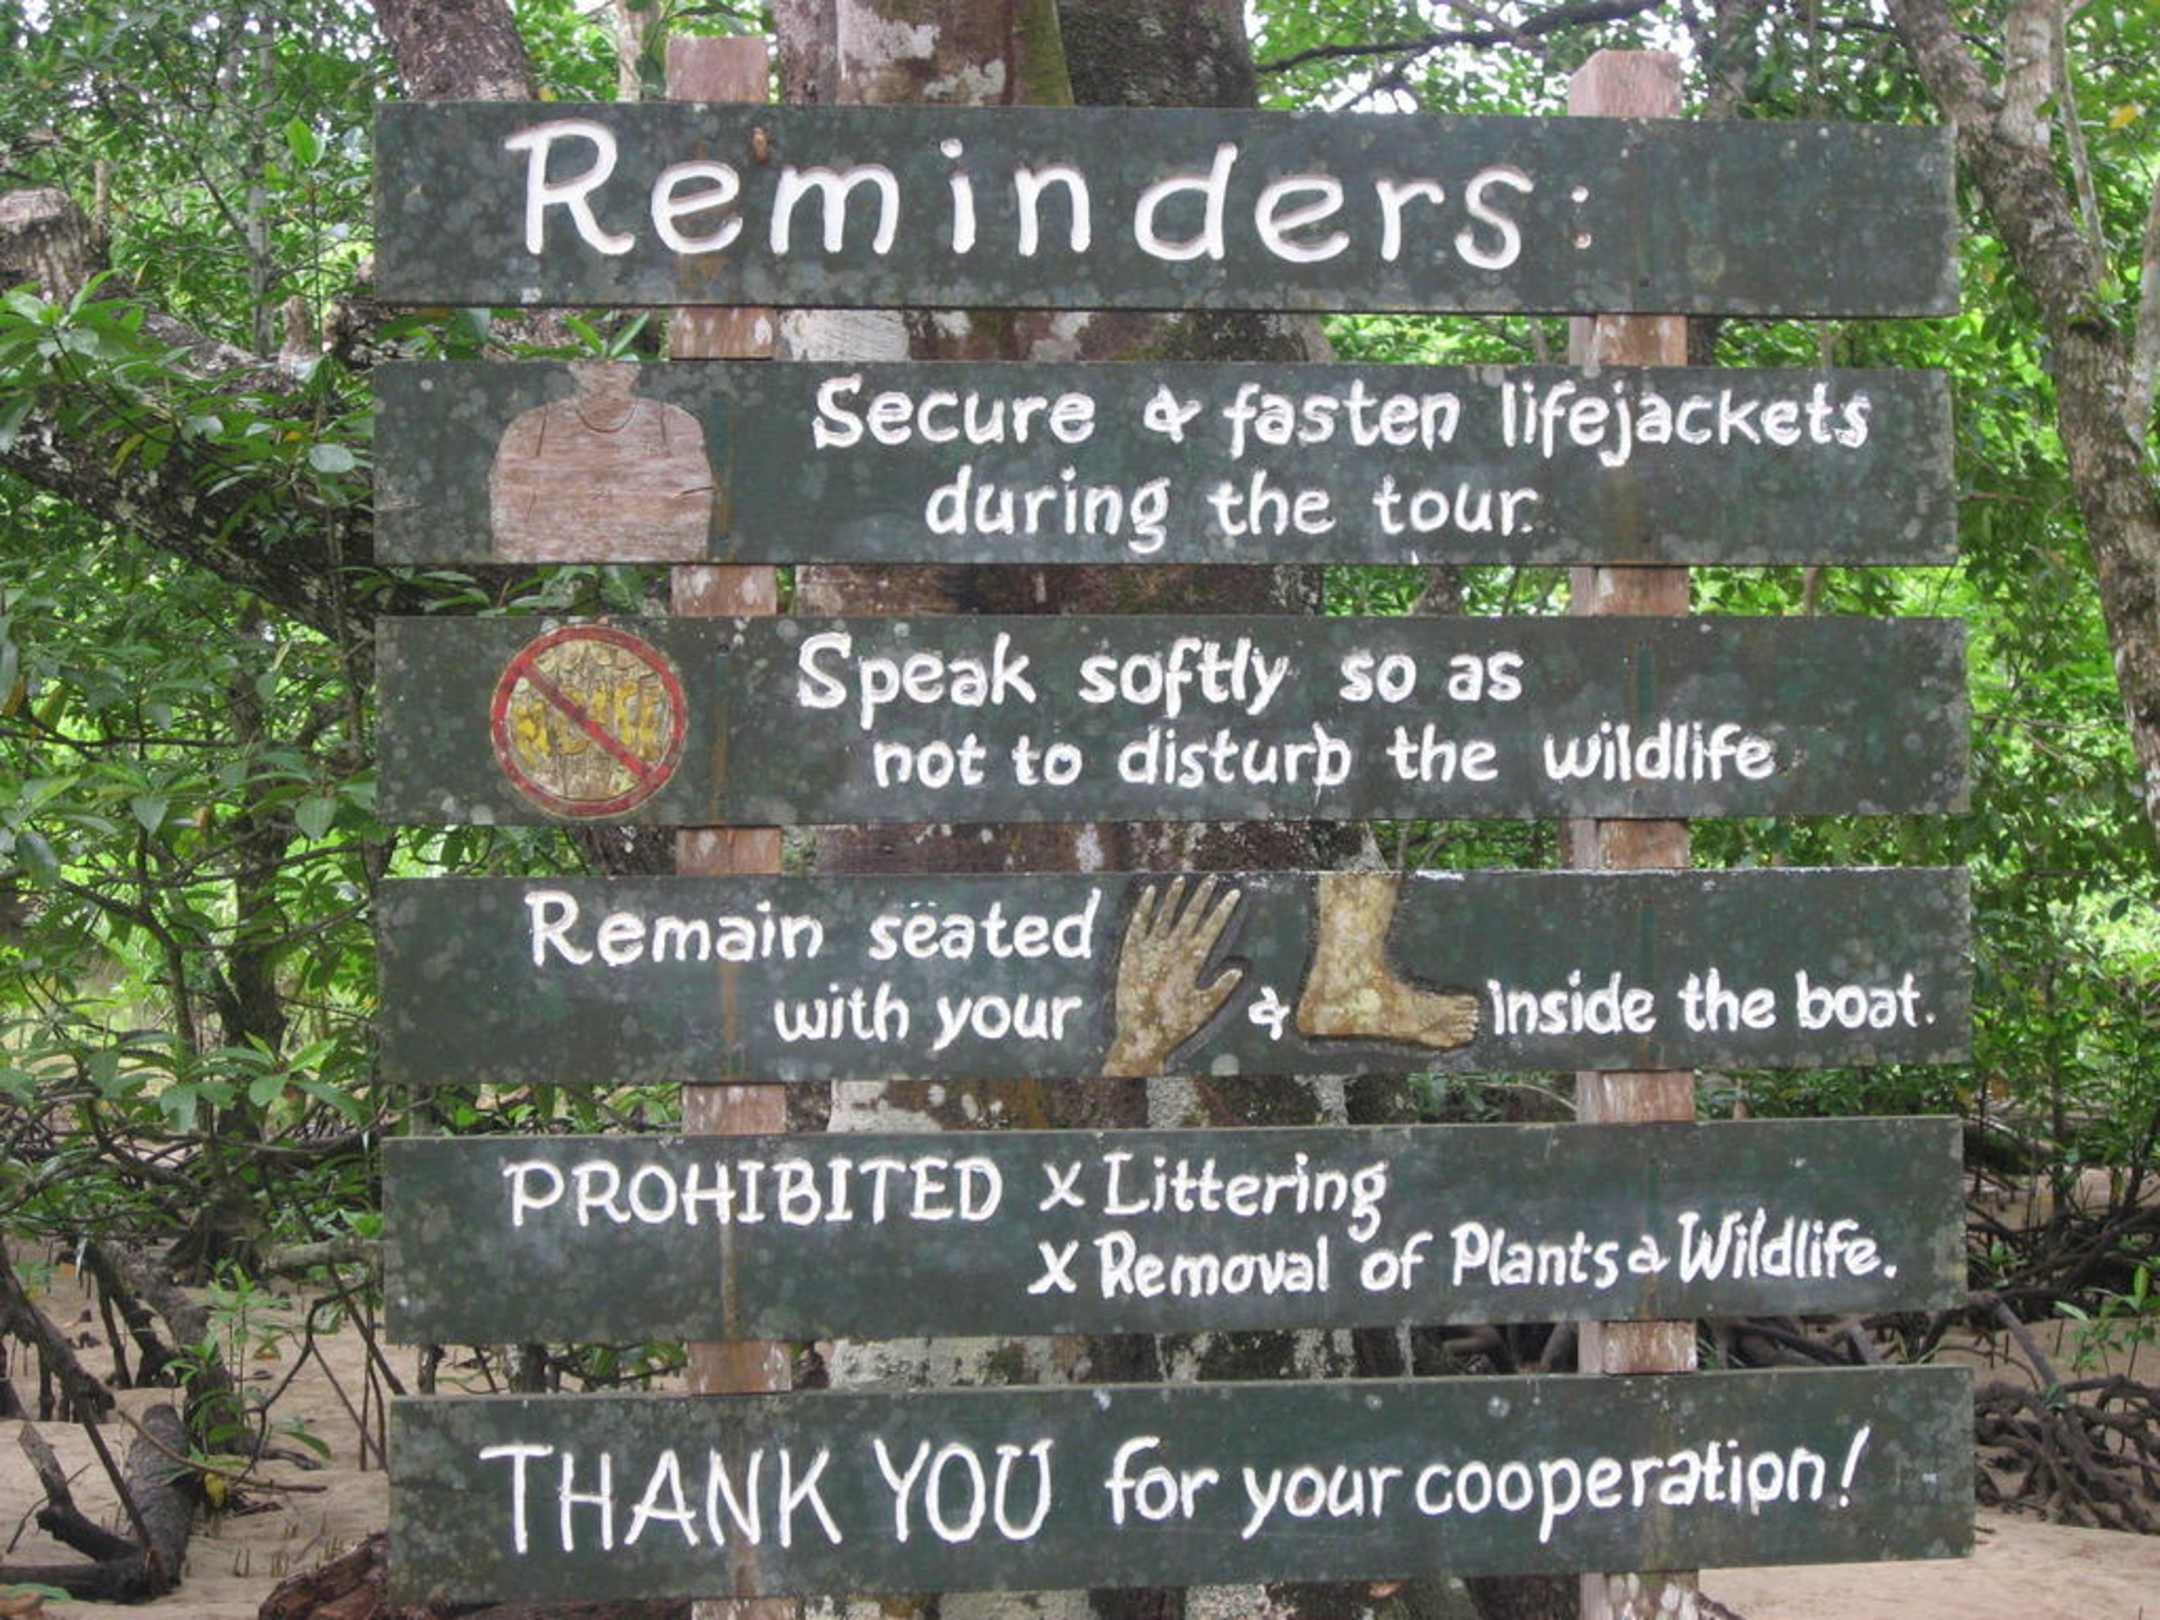 Reminders:
Secure & fasten lifejackets
during the tour.
Speak softly so as
not to disturb the wildlife
Remain seated
with your & inside the boat.
PROHIBITED x Littering
x Removal of Plants & Wildlife.
THANK YOU for your cooperation!